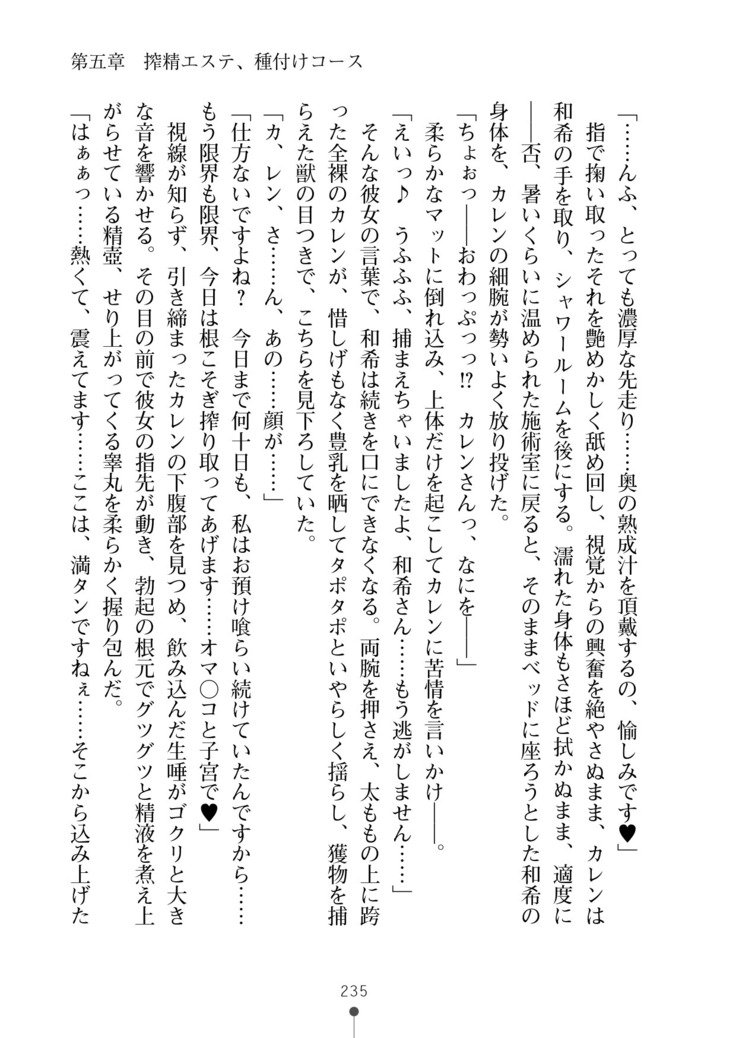 第五章　搾精エステ、種付けコース
「……んふ、とっても濃厚な先走り……奥の熟成汁を頂戴するの、愉しみです♥」
　指で掬い取ったそれを艶めかしく舐め回し、視覚からの興奮を絶やさぬまま、カレンは
和希の手を取り、シャワールームを後にする。濡れた身体もさほど拭かぬまま、適度に
――否、暑いくらいに温められた施術室に戻ると、そのままベッドに座ろうとした和希の
身体を、カレンの細腕が勢いよく放り投げた。
「ちょぉっ――おわっぷっっ!?　カレンさんっ、なにを――」
　柔らかなマットに倒れ込み、上体だけを起こしてカレンに苦情を言いかけ――。
「えいっ♪　うふふふ、捕まえちゃいましたよ、和希さん……もう逃がしません……」
　そんな彼女の言葉で、和希は続きを口にできなくなる。両腕を押さえ、太ももの上に跨
った全裸のカレンが、惜しげもなく豊乳を晒してタポタポといやらしく揺らし、獲物を捕
らえた獣の目つきで、こちらを見下ろしていた。
「カ、レン、さ……ん、あの……顔が……」
「仕方ないですよね？　今日まで何十日も、私はお預け喰らい続けていたんですから……
もう限界も限界、今日は根こそぎ搾り取ってあげます……オマ〇コと子宮で♥」
　視線が知らず、引き締まったカレンの下腹部を見つめ、飲み込んだ生唾がゴクリと大き
な音を響かせる。その目の前で彼女の指先が動き、勃起の根元でグツグツと精液を煮え上
がらせている精壺、せり上がってくる睾丸を柔らかく握り包んだ。
「はぁぁっ……熱くて、震えてます……ここは、満タンですねぇ……そこから込み上げた
235